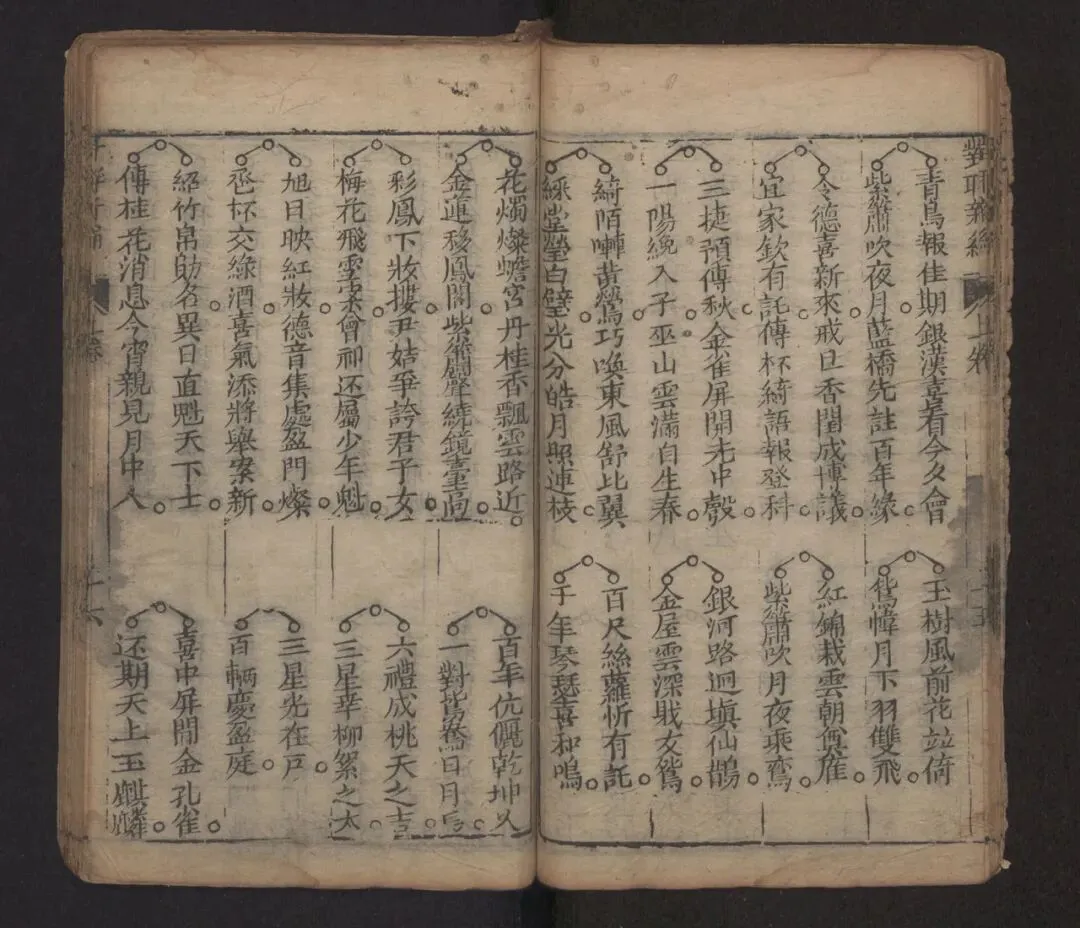 對聯新
上卷
青鳥報佳期銀漢喜看今夕會
紫簫吹夜月藍橋先註百年緣
令德喜新來戒旦香閨成博議
宜家欽有託傳杯綺語報登科
三捷預傳秋金雀屏開先中彀
一陽纔入子巫山雲滿自生春
綺陌囀黃鶯巧喚東風舒比翼
綵堂瑩白璧光分皓月照連枝
玉樹風前花並倚
鴛幃月下羽雙飛
紅鋪栽雲朝奠雁
紫簫吹月夜乘鸞
銀河路迥填仙鵲
金屋雲深戝文鴛
百尺絲蘿忻有託
千年琴瑟喜和鳴
花燭燦蟾宮丹桂香飄雲路近
金蓮移鳳閣紫簫聲繞鏡臺高
彩鳳下妝摟尹姞爭誇君子女
梅花飛雪案會神还屬少年魁
旭日映紅妝德音集處盈門燦
巹杯交綠酒喜氣添將舉案新
紹竹帛勛名異日直魁天下士
傳桂花消息今宵親見月中人
百年伉儷乾坤久
一對鴛鴦日月長
六禮成桃夭之吉
三星幸柳絮之太
三星光在戶
百輛慶盈庭
喜中屏間金孔雀
还期天上玉麒麟
上卷